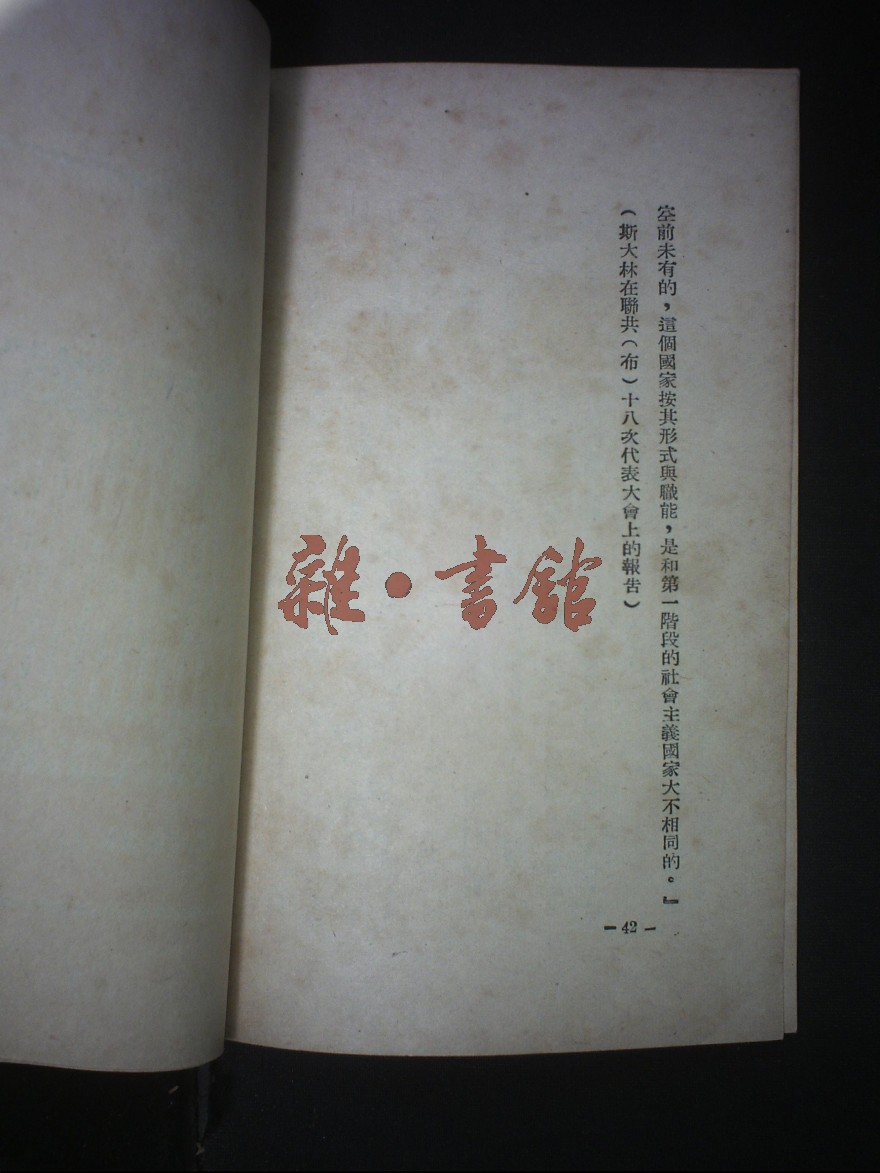 空前未有的，這個國家按其形式與職能，是和第一階段的社會主義國家大不相同的。』
（斯大林在聯共（布）十八次代表大會上的報告）
— 42 —
雜·書館